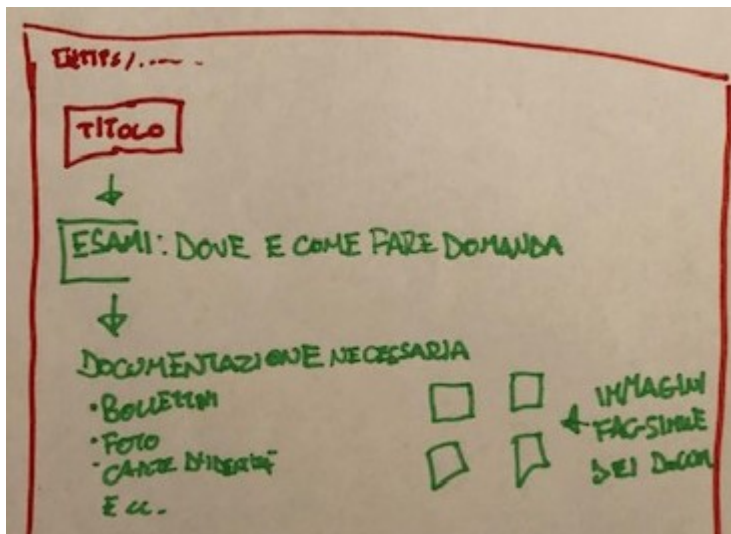 HTTPS/.....
TITOLO
ESAMI: DOVE E COME FARE DOMANDA
DOCUMENTAZIONE NECESSARIA
• BOLLETTINI
• FOTO
• CARTE D'IDENTITÀ
ECC.
IMMAGINI
FAC-SIMILE
DEI DOCUM